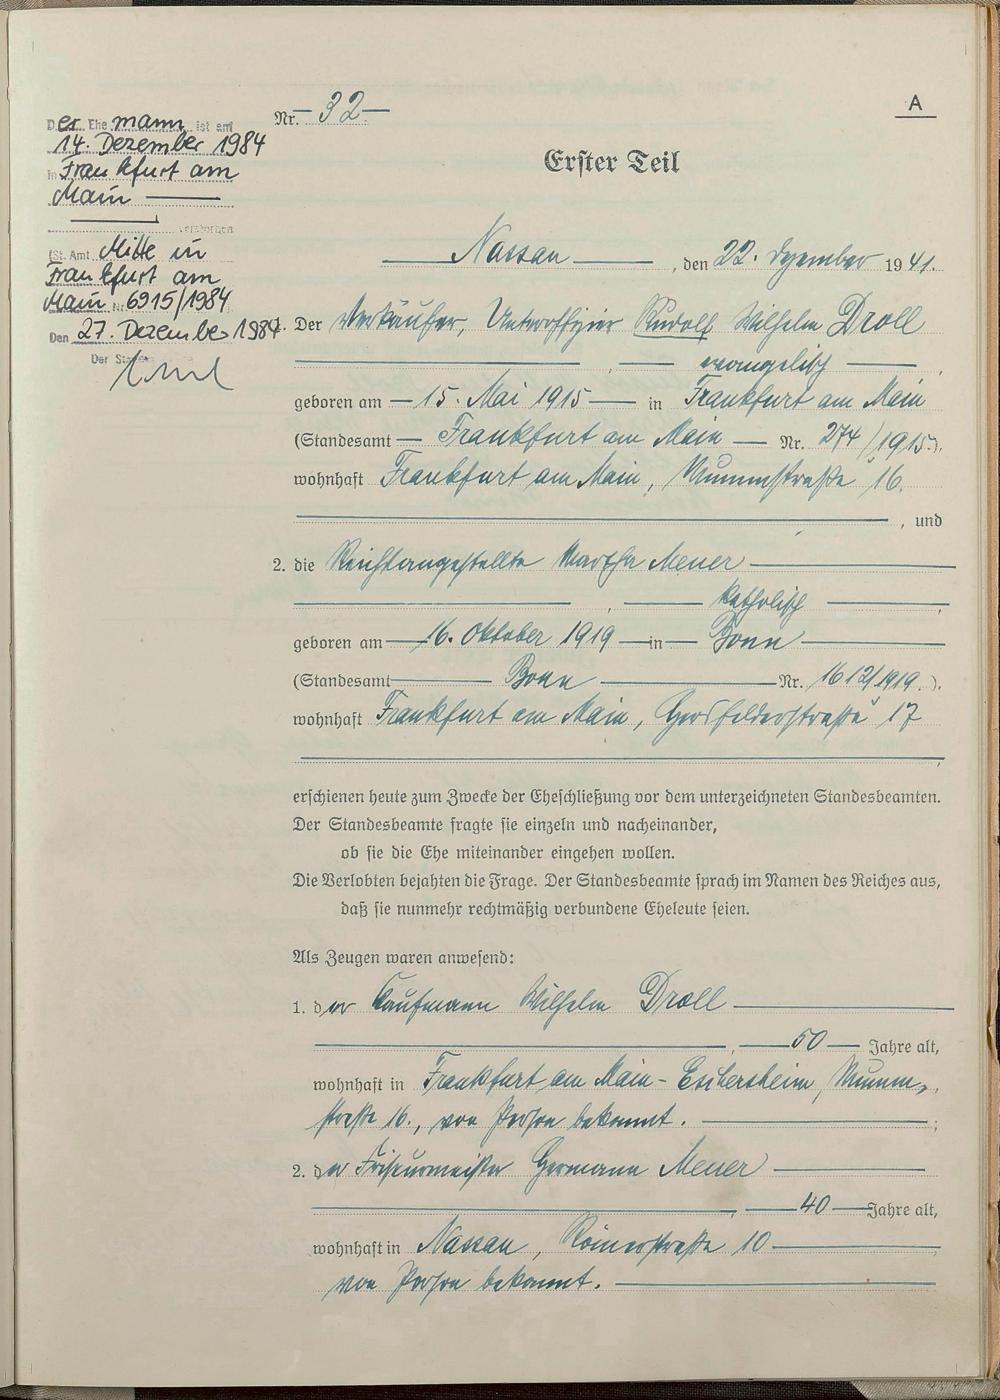 A
Nr. 32
Erster Teil
Der Ehemann ist am
14. Dezember 1984
in Frankfurt am
Main
verstorben
(St. Amt Mitte in
Frankfurt am
Main Nr. 6915/1984
Den 27. Dezember 1984
Der
Nassau, den 22. Dezember 1941.
1. Der Verkäufer, Unteroffizier Rudolf Wilhelm Droll
, evangelisch,
geboren am 15. Mai 1915 in Frankfurt am Main
(Standesamt Frankfurt am Main Nr. 274/1915.).
wohnhaft Frankfurt am Main, Mummstraße 16.
, und
2. die Reichsangestellte Martha Meuer
, katholisch,
geboren am 16. Oktober 1919 in Bonn
(Standesamt Bonn Nr. 1612/1919.).
wohnhaft Frankfurt am Main, Gersfelderstraße 17
,
erschienen heute zum Zwecke der Eheschließung vor dem unterzeichneten Standesbeamten.
Der Standesbeamte fragte sie einzeln und nacheinander,
ob sie die Ehe miteinander eingehen wollen.
Die Verlobten bejahten die Frage. Der Standesbeamte sprach im Namen des Reiches aus,
daß sie nunmehr rechtmäßig verbundene Eheleute seien.
Als Zeugen waren anwesend:
1. der Kaufmann Wilhelm Droll
, 50 Jahre alt,
wohnhaft in Frankfurt am Main - Eschersheim, Mumm-
straße 16., von Person bekannt. ;
2. der Friseurmeister Hermann Meuer
, 40 Jahre alt,
wohnhaft in Nassau, Römerstraße 10
von Person bekannt.